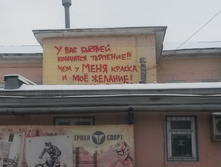 У ВАС БЫСТРЕЙ
КОНЧИТСЯ ТЕРПЕНИЕ!!!
ЧЕМ У МЕНЯ КРАСКА
И МОЁ ЖЕЛАНИЕ!
ГРИНН СПОРТ